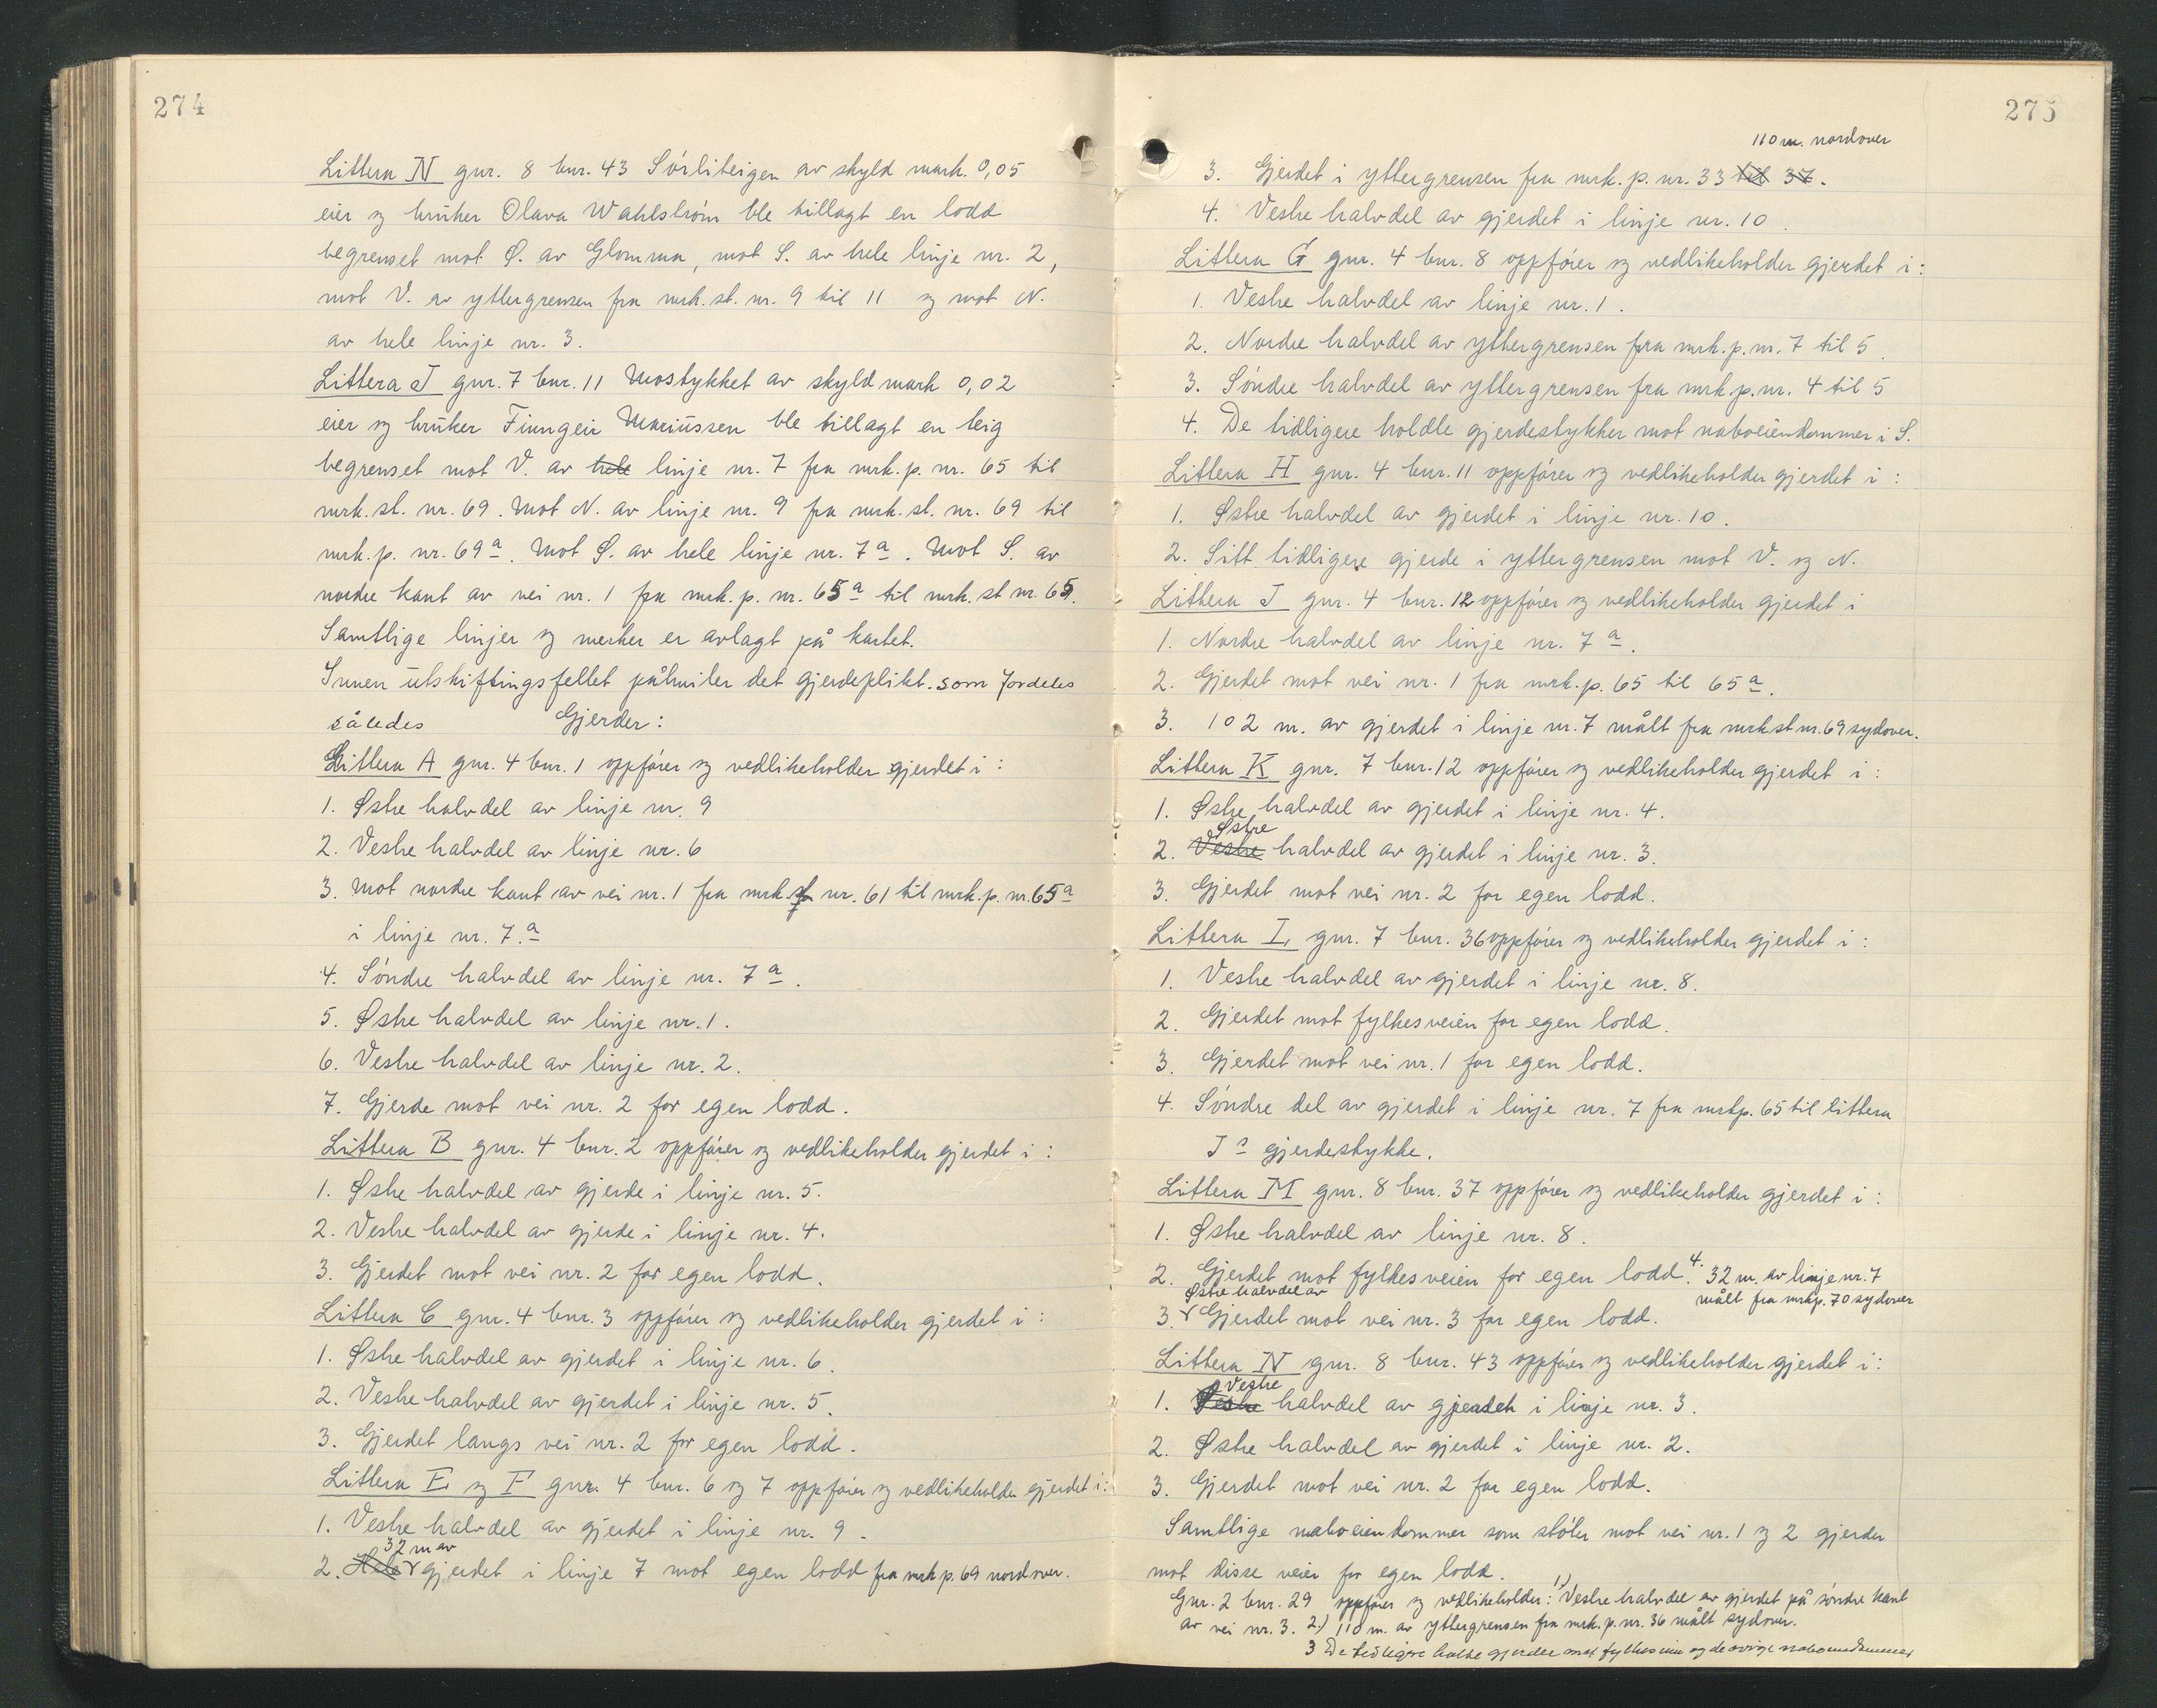 274
Littera N gnr. 8 bnr. 43 Sörliteigen av skyld mark. 0,05
eier og bruker Olava Wahlström ble tillagt en lodd
begrenset mot Ø. av Glomma, mot S. av hele linje nr. 2,
mot V. av yttergrensen fra mrk. st. nr. 9 til 11 og mot N.
av hele linje nr. 3.
Littera J gnr. 7 bnr. 11 Mostykket av skyld mark 0,02
eier og bruker Finngeir Mariussen ble tillagt en teig
begrenset mot V. av hele linje nr. 7 fra mrk. p. nr. 65 til
mrk. st. nr. 69. Mot N. av linje nr. 9 fra mrk. st. nr. 69 til
mrk. p. nr. 69a. Mot Ø. av hele linje nr. 7a. Mot S. av
nordre kant av vei nr. 1 fra mrk. p. nr. 65a til mrk. st nr. 65.
Samtlige linjer og merker er avlagt på kartet.
Innen utskiftingsfeltet påhviler det gjerdeplikt. som fordeles
således Gjerder:
Littera A gnr. 4 bnr. 1 oppfører og vedlikeholder gjerdet i:
1. Østre halvdel av linje nr. 9
2. Vestre halvdel av linje nr. 6
3. Mot nordre kant av vei nr. 1 fra mrk. p nr. 61 til mrk. p. nr. 65a
i linje nr. 7.a
4. Söndre halvdel av linje nr. 7a.
5. Østre halvdel av linje nr. 1.
6. Vestre halvdel av linje nr. 2.
7. Gjerde mot vei nr. 2 for egen lodd.
Littera B gnr. 4 bnr. 2 oppfører og vedlikeholder gjerdet i:
1. Østre halvdel av gjerde i linje nr. 5.
2. Vestre halvdel av gjerde i linje nr. 4.
3. Gjerdet mot vei nr. 2 for egen lodd.
Littera C gnr. 4 bnr. 3 oppfører og vedlikeholder gjerdet i:
1. Østre halvdel av gjerdet i linje nr. 6.
2. Vestre halvdel av gjerdet i linje nr. 5.
3. Gjerdet langs vei nr. 2 for egen lodd.
Littera E og F gnr. 4 bnr. 6 og 7 oppfører og vedlikeholder gjerdet i:
1. Vestre halvdel av gjerdet i linje nr. 9.
32 m av
2. Hele gjerdet i linje 7 mot egen lodd fra mrk p. 69 nordover.
275
110 m. nordover
3. Gjerdet i yttergrensen fra mrk. p. nr. 33 til 37.
4. Vestre halvdel av gjerdet i linje nr. 10.
Littera G gnr. 4 bnr. 8 oppfører og vedlikeholder gjerdet i:
1. Vestre halvdel av linje nr. 1.
2. Nordre halvdel av yttergrensen fra mrk. p. nr. 7 til 5.
3. Söndre halvdel av yttergrensen fra mrk p. nr. 4 til 5
4. De tidligere holdte gjerdestykker mot naboeiendommer i S.
Littera H gnr. 4 bnr. 11 oppfører og vedlikeholder gjerdet i:
1. Østre halvdel av gjerdet i linje nr. 10.
2. Sitt tidligere gjerde i yttergrensen mot V. og N.
Littera J gnr. 4 bnr. 12 oppfører og vedlikeholder gjerdet i
1. Nordre halvdel av linje nr. 7a.
2. Gjerdet mot vei nr. 1 fra mrk. p. 65 til 65a.
3. 102 m. av gjerdet i linje nr. 7 målt fra mrk st nr. 69 sydover.
Littera K gnr. 7 bnr. 12 oppfører og vedlikeholder gjerdet i:
1. Østre halvdel av gjerdet i linje nr. 4.
Østre
2. Vestre halvdel av gjerdet i linje nr. 3.
3. Gjerdet mot vei nr. 2 for egen lodd.
Littera L gnr. 7 bnr. 36 oppfører og vedlikeholder gjerdet i:
1. Vestre halvdel av gjerdet i linje nr. 8.
2. Gjerdet mot fylkesveien for egen lodd.
3. Gjerdet mot vei nr. 1 for egen lodd.
4. Söndre del av gjerdet i linje nr. 7 fra mrkp. 65 til littera
Js gjerdestykke.
Littera M gnr. 8 bnr. 37 oppfører og vedlikeholder gjerdet i:
1. Østre halvdel av linje nr. 8.
2. Gjerdet mot fylkesveien for egen lodd. 4. 32 m. av linje nr. 7
målt fra mrkp. 70 sydover
Østre halvdel av
3. Gjerdet mot vei nr. 3 for egen lodd.
Littera N gnr. 8 bnr. 43 oppfører og vedlikeholder gjerdet i:
Vestre
1. halvdel av gjerdet i linje nr. 3.
2. Østre halvdel av gjerdet i linje nr. 2.
3. Gjerdet mot vei nr. 2 for egen lodd.
Samtlige naboeiendommer som støter mot vei nr. 1 og 2 gjerder
mot disse veier for egen lodd.
Gnr. 2 bnr. 29 oppfører og vedlikeholder: 1) Vestre halvdel av gjerdet på søndre kant
av vei nr. 3. 2) 110 m. av yttergrensen fra mrk. p. nr. 36 målt sydover.
3 De tidligere holdte gjerder mot fylkesveien og de øvrige naboeiendommer